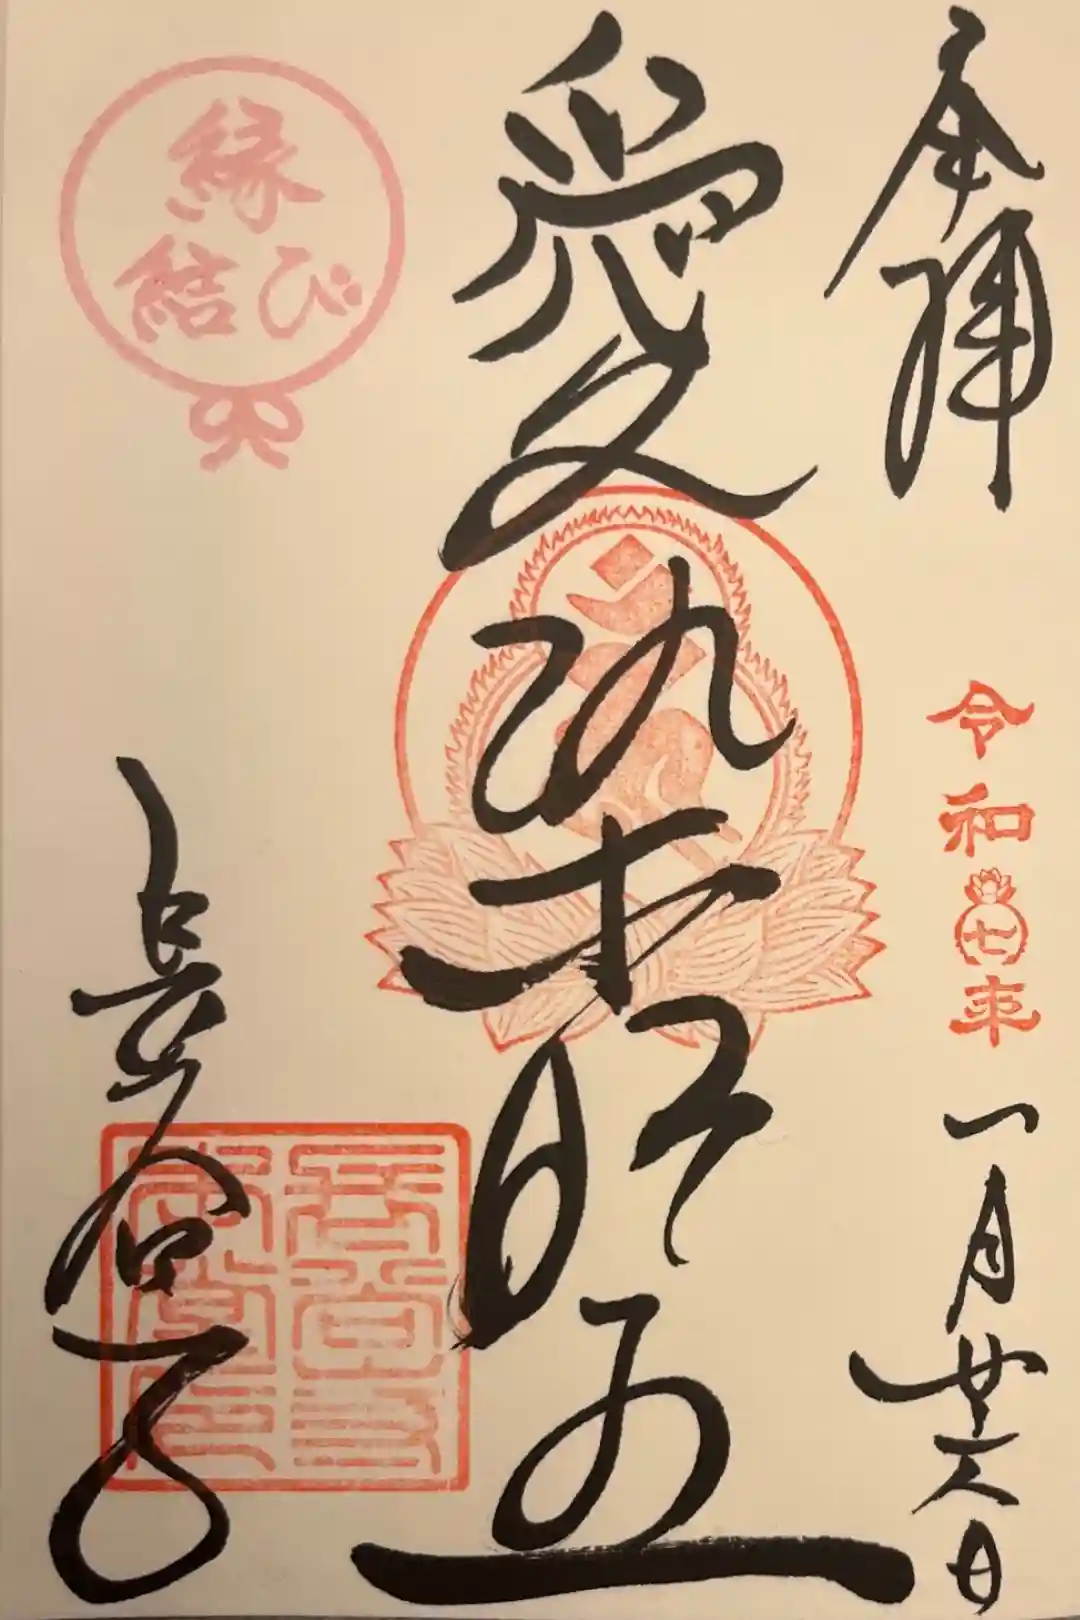 奉拝
令和七年
一月廿六日
愛染明王
縁
結び
長谷寺